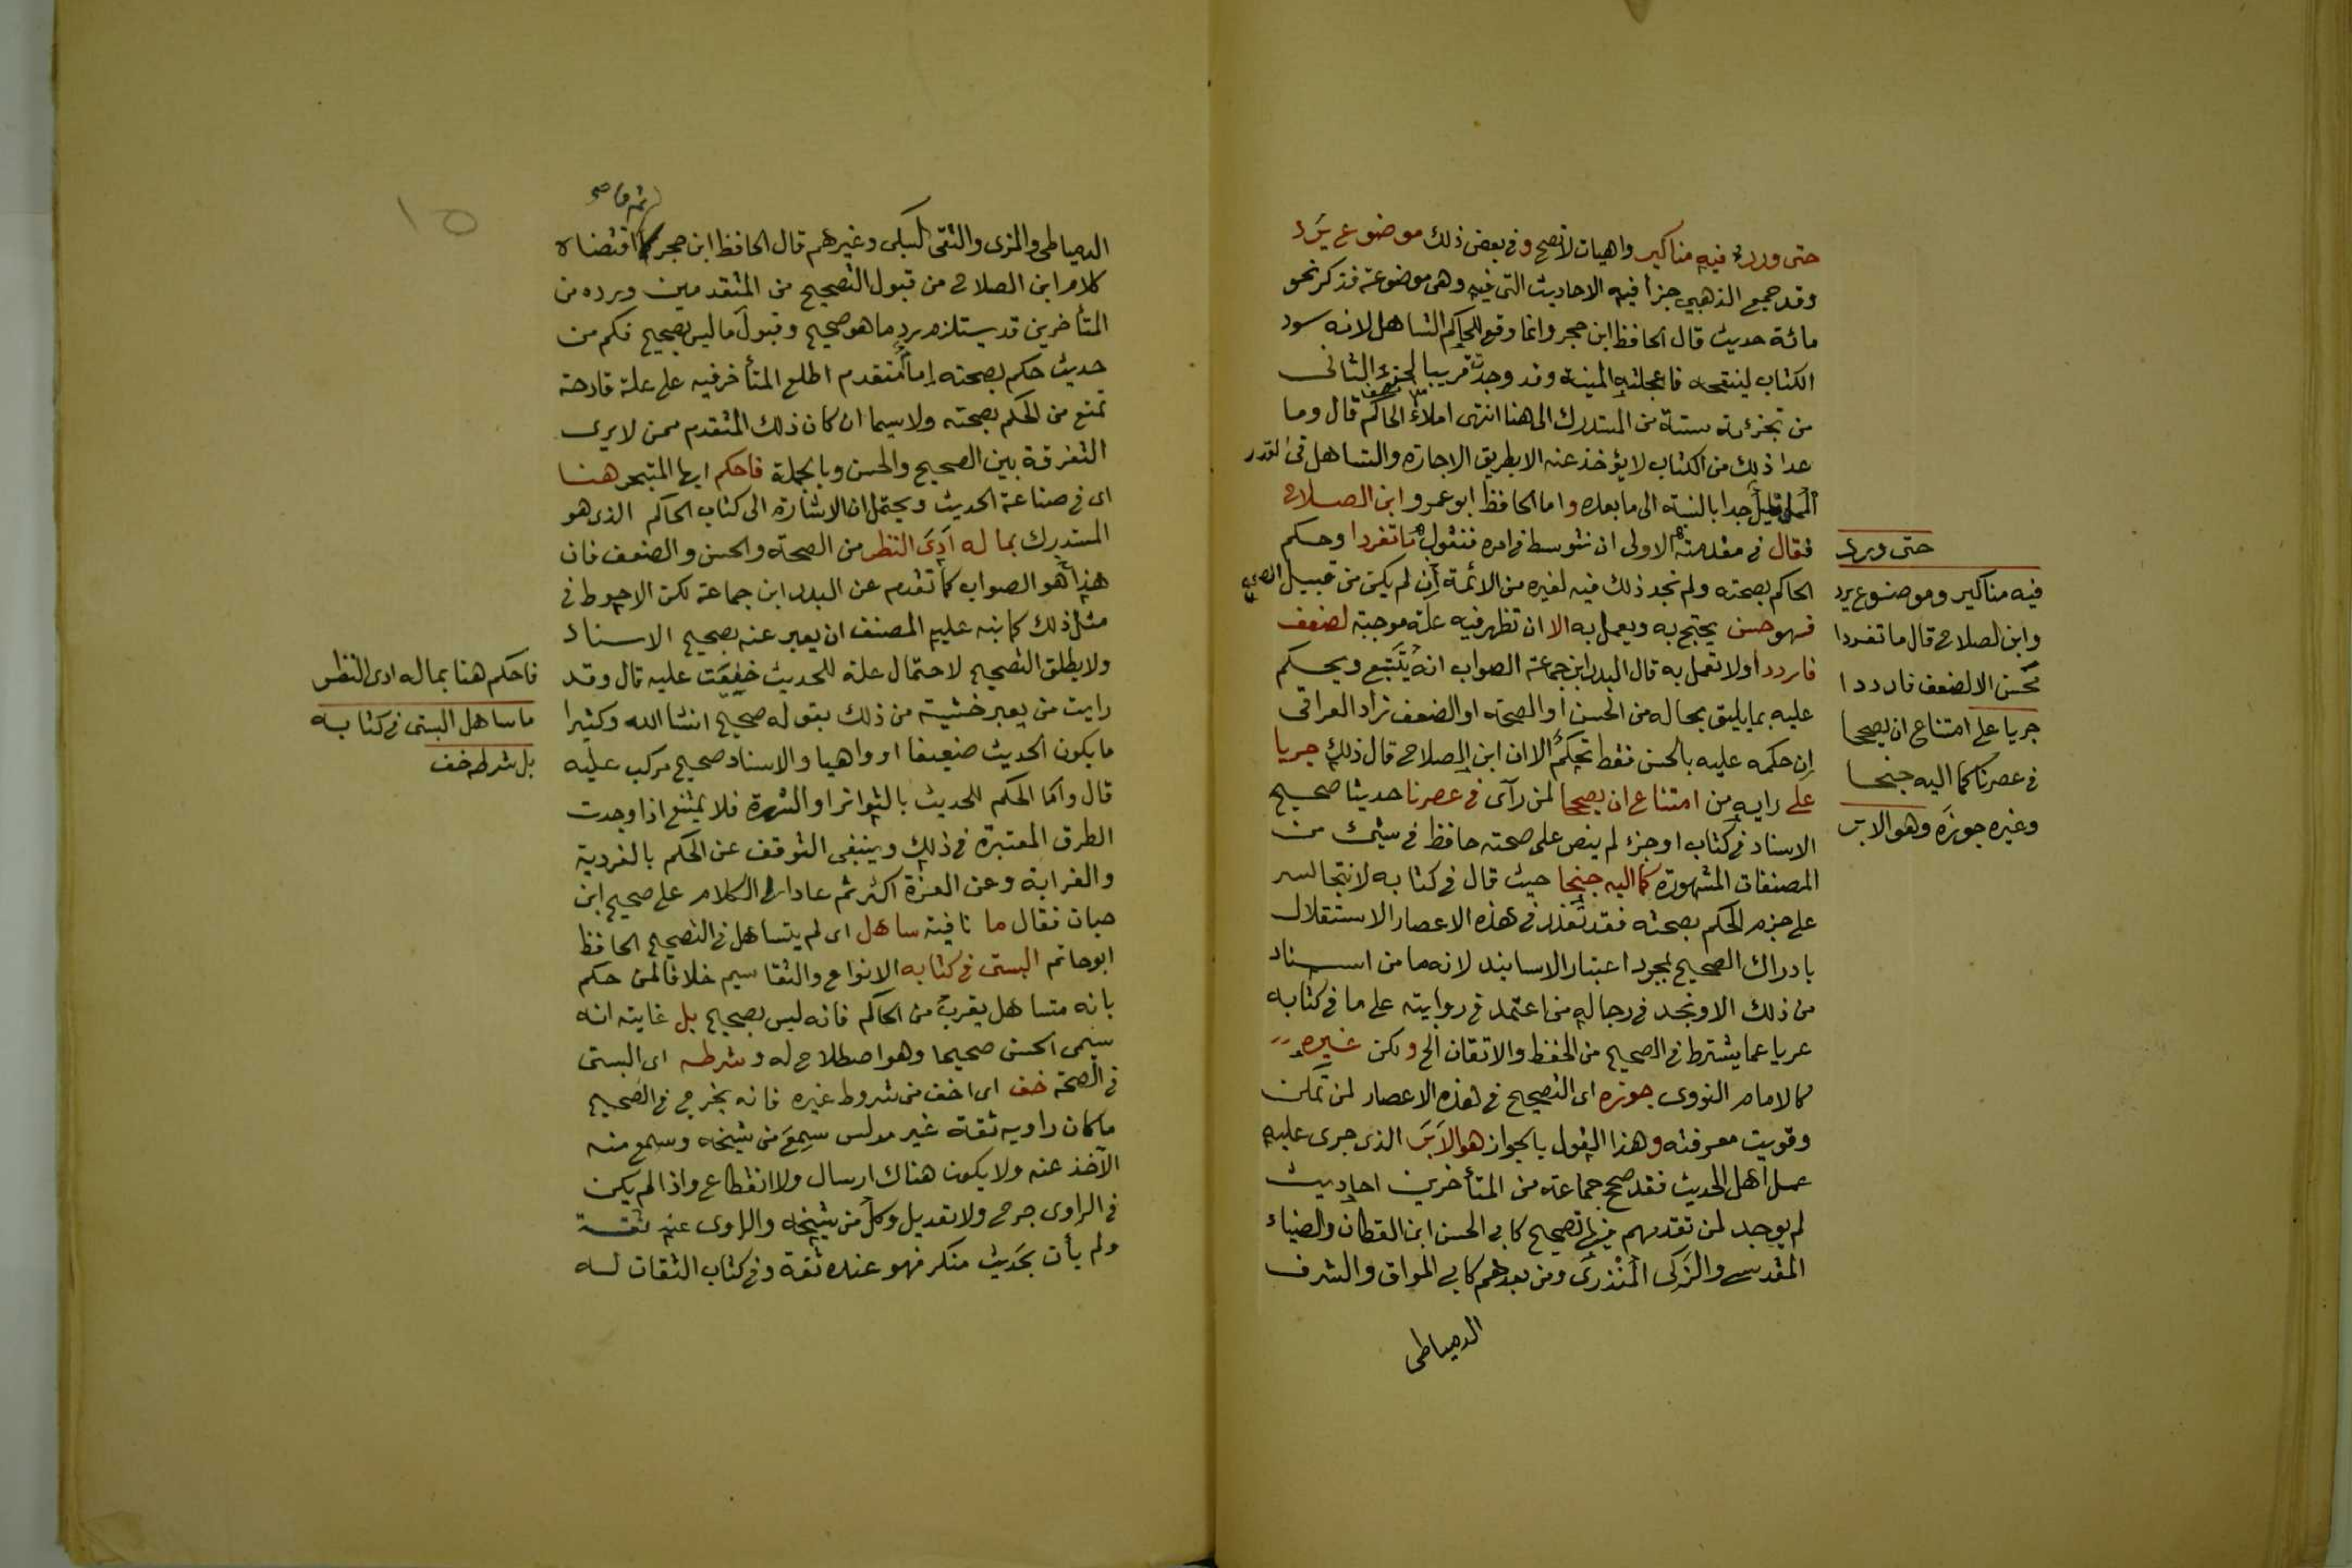 حتى ورد فيه مناكير واهيات لا تصح وفي بعض ذلك موضوع يرد
وقد جمع الذهبي جزأ فيه الاحاديث التي فيه وهي موضوعة فذكر نحو
مائة حديث قال الحافظ ابن حجر وانما وقع للحاكم التساهل لانه سود
الكتاب لينقحه فاعجلته المنية وقد وجدت قريبا لجزء الثاني
من تجزئة ستة من المستدرك الى هنا انتهى املاء الحاكم قال وما
عدا ذلك من الكتاب لا يؤخذ عنه الا بطريق الاجازه والتساهل في القدر
المملى قليل جدا بالنسبة الى ما بعده واما الحافظ ابو عمرو ابن الصلاح
فقال في مقدمته الاولى ان نتوسط في امره فنقول ما تفردا وحكم
الحاكم بصحته ولم نجد ذلك فيه لغيره من الائمة ان لم يكن من قبيل الصحيح
فهو حسن يحتج به ويعمل به الا ان تظهر فيه علة موجبة لضعف
فارددا ولا تعمل به قال البدر ابن جماعة الصواب انه يتتبع ويحكم
عليه بما يليق بحاله من الحسن أو الصحة او الضعف زاد العراقي
ان حكمه عليه بالحسن فقط تحكم الا ان ابن الصلاح قال ذلك جريا
على رايه من امتناع ان يصححا لمن رآى في عصرنا حديثا صحيح
الاسناد في كتاب او جزء لم ينص على صحته حافظ في شيئ من
المصنفات المشهورة كما اليه جنحا حيث قال في كتابه لا نتجاسر
على جزم الحكم بصحته فقد تعذر في هذه الاعصار الاستقلال
بادراك الصحيح بمجرد اعتبار الاسانيد لانه ما من اسناد
من ذلك الا ونجد في رجاله من اعتمد في روايته على ما في كتابه
عريا عما يشترط في الصحيح من الحفظ والاتقان الخ ولكن غيره
كالامام النووي جوزه اى التصحيح في هذه الاعصار لمن تمكن
وقويت معرفته وهذا القول بالجواز هو الابر الذي جرى عليه
عمل اهل الحديث فقد صحح جماعة من المتأخرين احاديث
لم يوجد لمن تقدمهم فيها تصحيح كابي الحسن ابن القطان والضياء
المقدسي والزكى المنذرى ومن بعدهم كابي المواق والشرف
الدمياطي
حتى ورد
فيه مناكير وموضوع يرد
وابن الصلاح قال ما تفردا
حسن الا لضعف فارددا
جريا على امتناع ان يصححا
في عصرنا كما اليه جنحا
وغيره جوزه وهو الابر
١٥
الدمياطي والمزى والتقى السبكى وغيرهم قال الحافظ ابن حجر ما اقتضاه
كلام ابن الصلاح من قبول التصحيح من المتقدمين ورده من
المتأخرين قد يستلزم رد ما هو صحيح وقبول ما ليس بصحيح فكم من
حديث حكم بصحته إمام متقدم اطلع المتأخر فيه على علة قادحة
تمنع من الحكم بصحته ولا سيما ان كان ذلك المتقدم ممن لا يرى
التفرقة بين الصحيح والحسن وبالجملة فاحكم ايها المتبحر هنا
اى في صناعة الحديث ويحتمل ان الاشارة الى كتاب الحاكم الذى هو
المستدرك بما له أدى النظر من الصحة والحسن والضعف فان
هذا هو الصواب كما تقدم عن البدر ابن جماعة لكن الاحوط في
مثل ذلك كما نبه عليه المصنف ان يعبر عنه بصحيح الاسناد
ولا يطلق التصحيح لاحتمال علة للحديث خفيت عليه قال وقد
رايت من يعبر خشية من ذلك بقوله صحيح انشا الله وكثيرا
ما يكون الحديث ضعيفا او واهيا والاسناد صحيح مركب عليه
قال واما الحكم للحديث بالتواتر او الشهرة فلا يمتنع اذا وجدت
الطرق المعتبرة في ذلك وينبغي التوقف عن الحكم بالفردية
والغرابة وعن العزة اكثر ثم عاد الى الكلام على صحيح ابن
حبان فقال ما نافية ساهل اى لم يتساهل في التصحيح الحافظ
ابو حاتم البستى في كتابه الانواع والتقاسيم خلافا لمن حكم
بانه متساهل يقرب من الحاكم فانه ليس بصحيح بل غايته انه
يسمى الحسن صحيحا وهو اصطلاح له وشرطه اى البستى
في الصحة خف اى اخف من شروط غيره فانه يخرج في الصحيح
ما كان راويه ثقة غير مدلس سمع من شيخه وسمع منه
الآخذ عنه ولا يكون هناك ارسال ولا انقطاع واذا لم يكن
في الراوى جرح ولا تعديل وكل من شيخه والراوى عنه ثقة
ولم يأت بحديث منكر فهو عنده ثقة وفي كتاب الثقات له
فاحكم هنا بما له ادى النظر
ما ساهل البستى في كتابه
بل شرطه خف